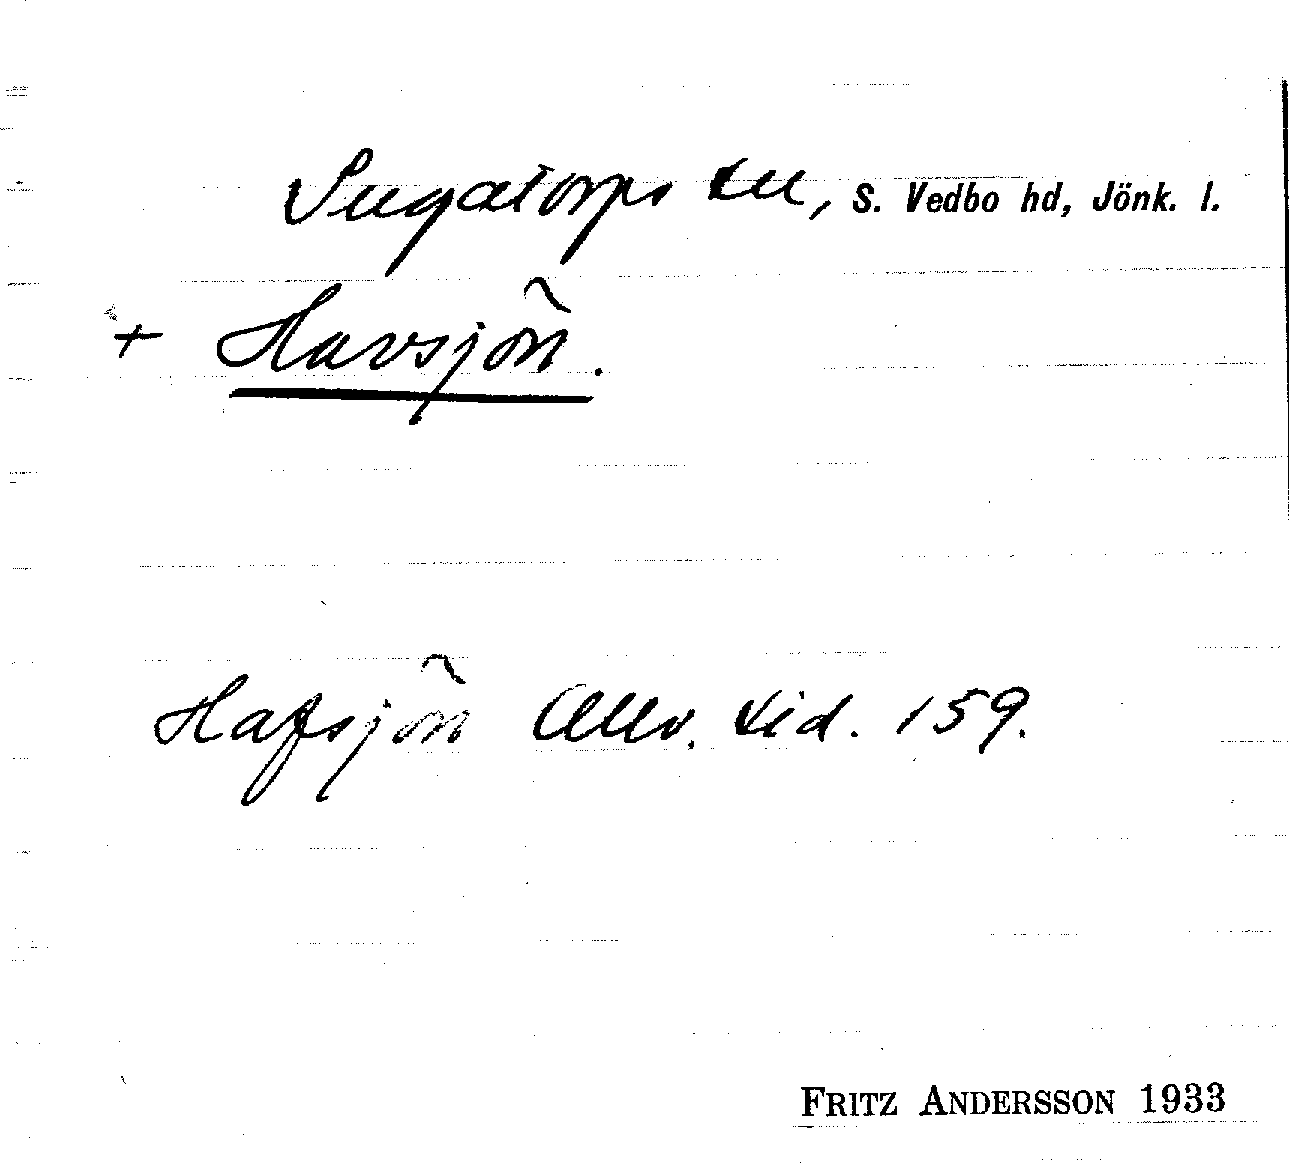 Ingatorps sn, S. Vedbo hd, Jönk. l.
+ Havsjön.
Hafsjön Allv. sid. 159.
FRITZ ANDERSSON 1933